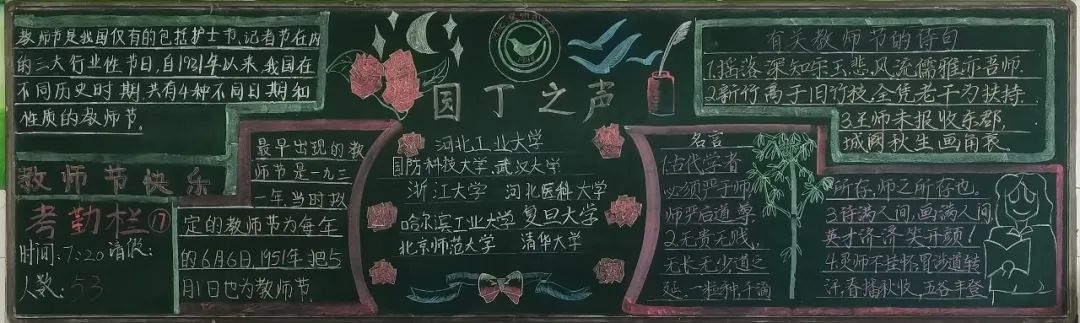 教师节是我国仅有的包括护士节、记者节在内
的三大行业性节日,自1931年以来,我国在
不同历史时期,共有4种不同日期和
性质的教师节。
教师节快乐
考勤栏
⑰
时间:7:20 请假:
人数:53
最早出现的教
师节是一九三
一年,当时政
定的教师节为每年
的6月6日,1951年把5
月1日也为教师节
园丁之声
河北工业大学
国防科技大学、武汉大学
浙江大学 河北医科大学
哈尔滨工业大学 复旦大学
北京师范大学 清华大学
有关教师节的诗句
1.摇落深知宋玉悲,风流儒雅亦吾师.
2.新竹高于旧竹枝,全凭老干为扶持.
3.王师未报收东郡,
城阙秋生画角哀.
名言
1.古代学者
必须严于师
师严后道尊
2.无贵无贱,
无长无少道之
所存,师之所存也。
3.诗满人间,画满人间
英才济济笑开颜!
延.一粒种,千滴
汗,春播秋收,五谷丰登